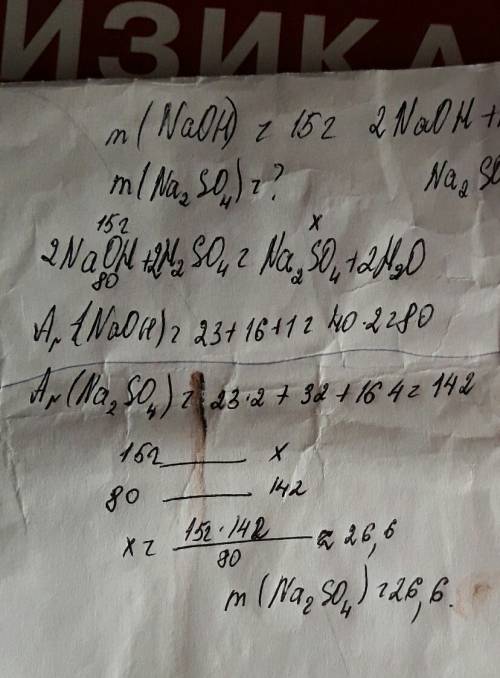 ИЗИКА
m(NaOH) = 15г 2NaOH +
m(Na₂SO₄) = ? Na₂SO
15г x
2NaOH + 2H₂SO₄ = Na₂SO₄ + 2H₂O
80
Ar (NaOH) = 23 + 16 + 1 = 40 · 2 = 80
Ar (Na₂SO₄) = 23 · 2 + 32 + 16 4 = 142
15г x
80 142
x = 15г · 142 ≈ 26,6
80
m(Na₂SO₄) = 26,6.